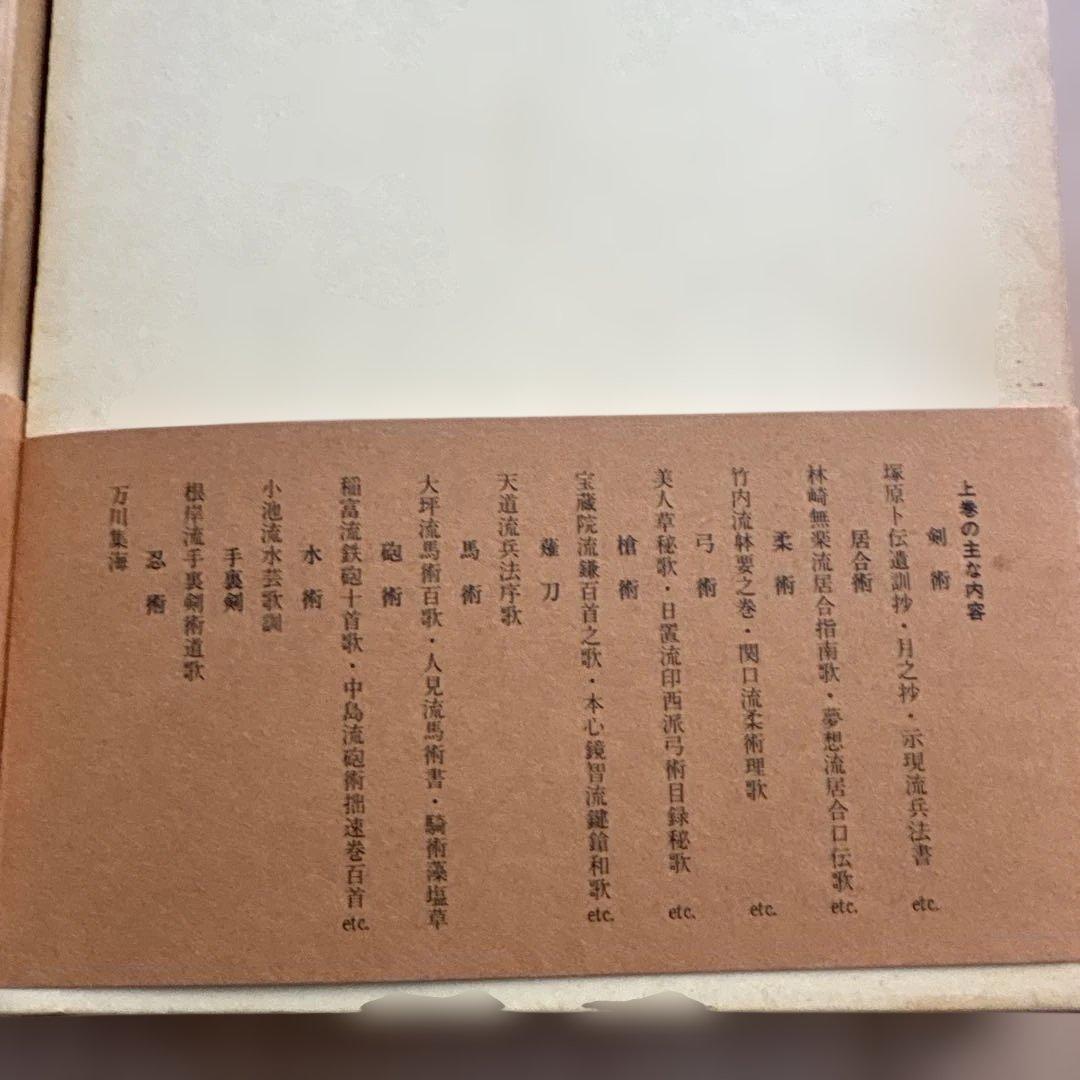 上巻の主な内容
剣術
塚原卜伝遺訓抄・月之抄・示現流兵法書 etc.
居合術
林崎無楽流居合指南歌・夢想流居合口伝歌 etc.
柔術
竹内流躰要之巻・関口流柔術理歌 etc.
弓術
美人草秘歌・日置流印西派弓術目録秘歌 etc.
槍術
宝蔵院流鎌百首之歌・本心鏡智流鍵鎗和歌 etc.
薙刀
天道流兵法序歌
馬術
大坪流馬術百歌・人見流馬術書・騎術藻塩草
砲術
稲富流鉄砲十首歌・中島流砲術拙速巻百首 etc.
水術
小池流水芸歌訓
手裏剣
根岸流手裏剣術道歌
忍術
万川集海